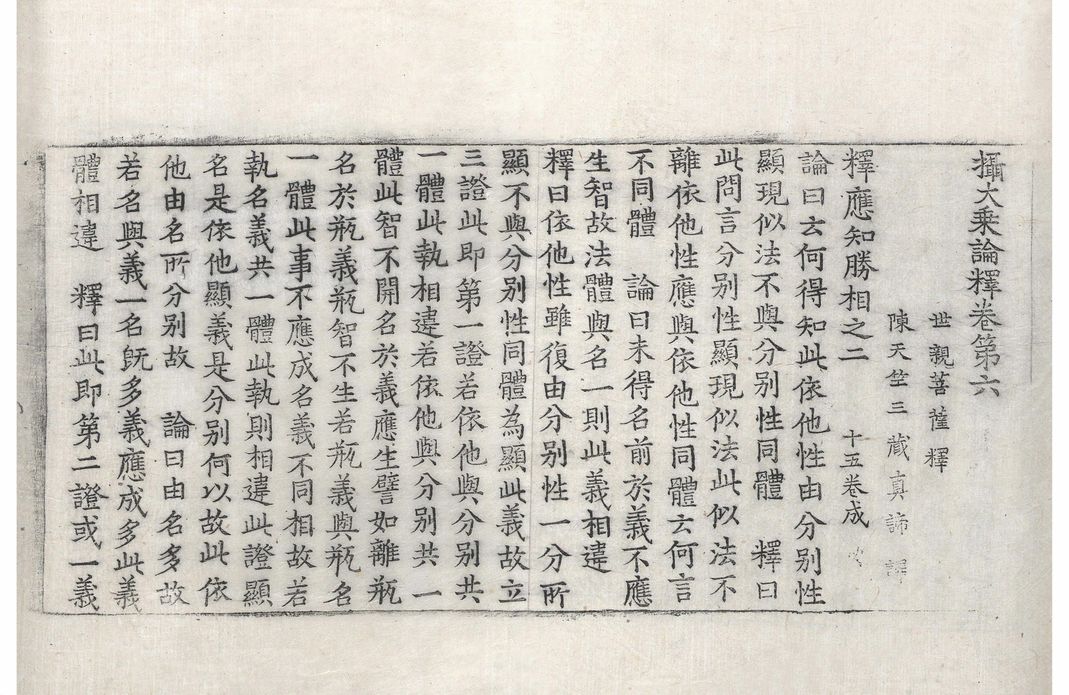 攝大乘論釋卷第六
世親菩薩釋
陳天竺三藏真諦譯
釋應知勝相之二 十五卷成
論曰云何得知此依他性由分别性
顯現似法不與分别性同體 釋曰
此問言分别性顯現似法此似法不
離依他性應與依他性同體云何言
不同體 論曰未得名前於義不應
生智故法體與名一則此義相違
釋曰依他性雖復由分别性一分所
顯不與分别性同體為顯此義故立
三證此即第一證若依他與分别共
一體此執相違若依他與分别共一
體此智不開名於義應生譬如離瓶
名於瓶義瓶智不生若瓶義與瓶名
一體此事不應成名義不同相故若
執名義共一體此執則相違此證顯
名是依他顯義是分别何以故此依
他由名所分别故 論曰由名多故
若名與義一名既多義應成多此義
體相違 釋曰此即第二證或一義